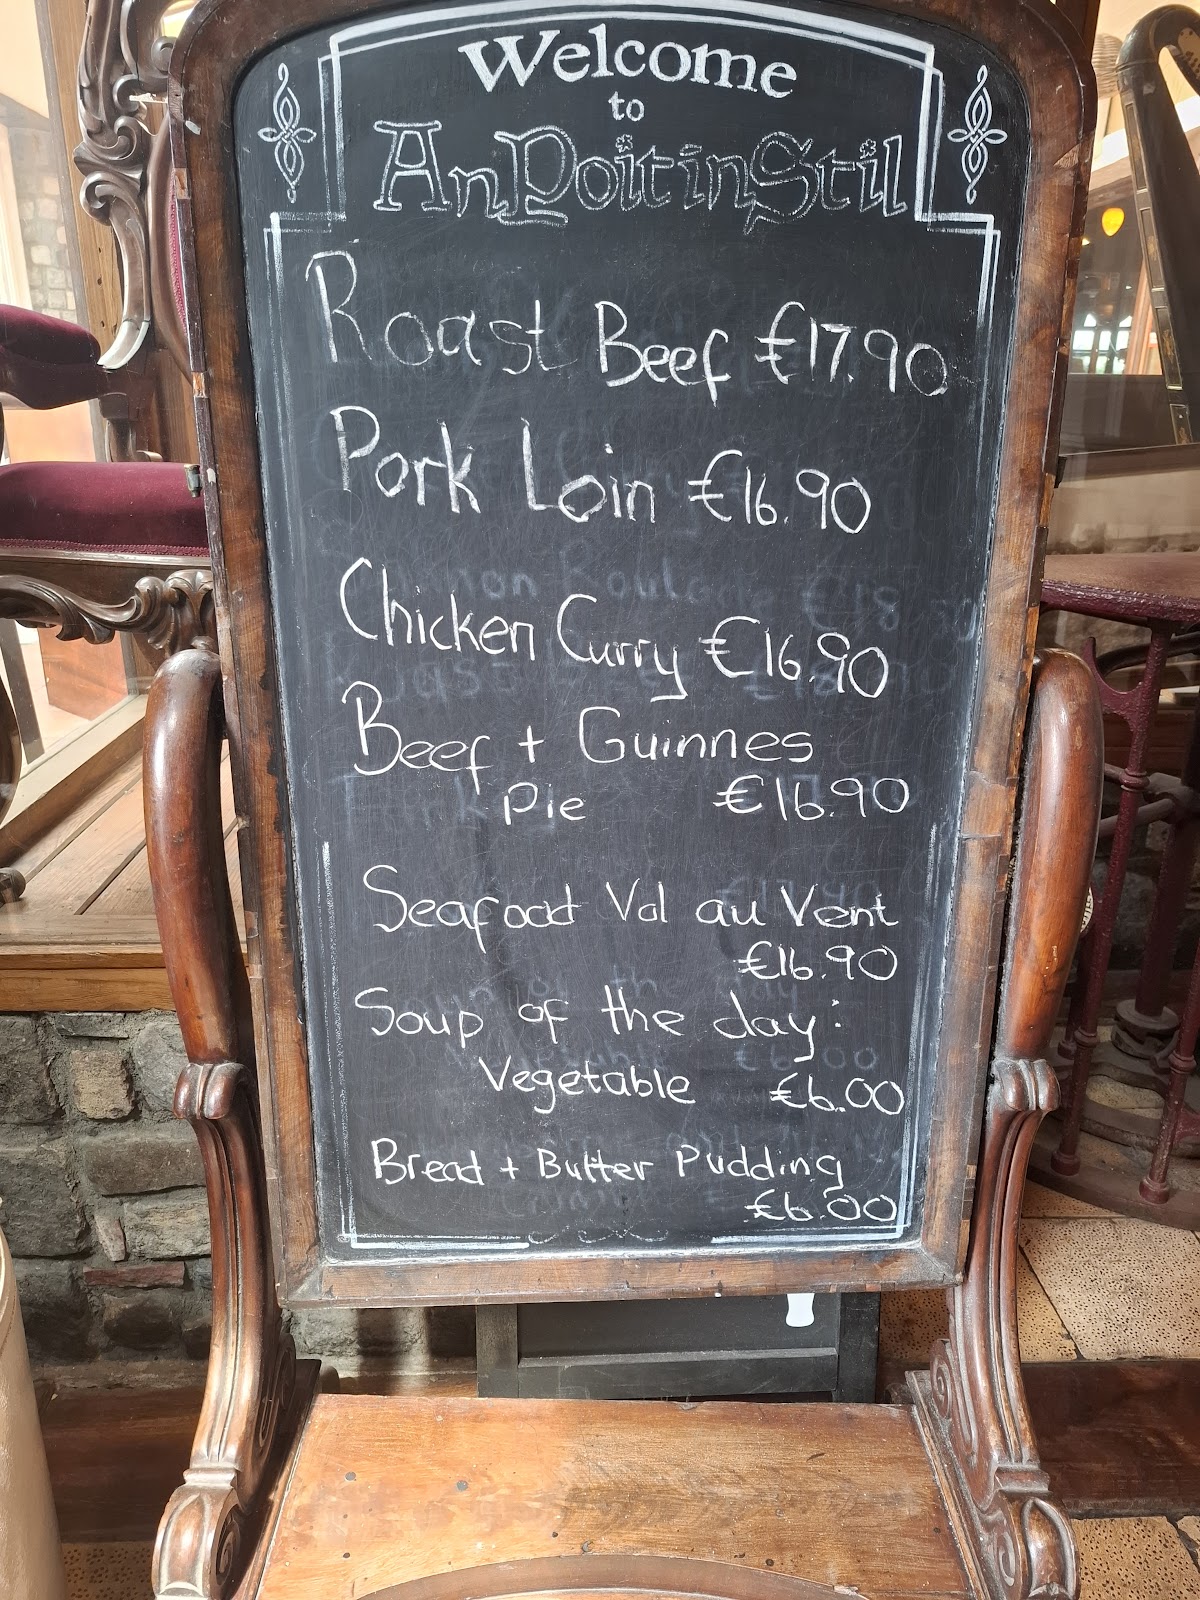 Welcome
to
An Poitín Stil
Roast Beef €17.90
Pork Loin €16.90
Chicken Curry €16.90
Beef + Guinnes
Pie €16.90
Seafood Vol au Vent
€16.90
Soup of the day:
Vegetable €6.00
Bread + Butter Pudding
€6.00